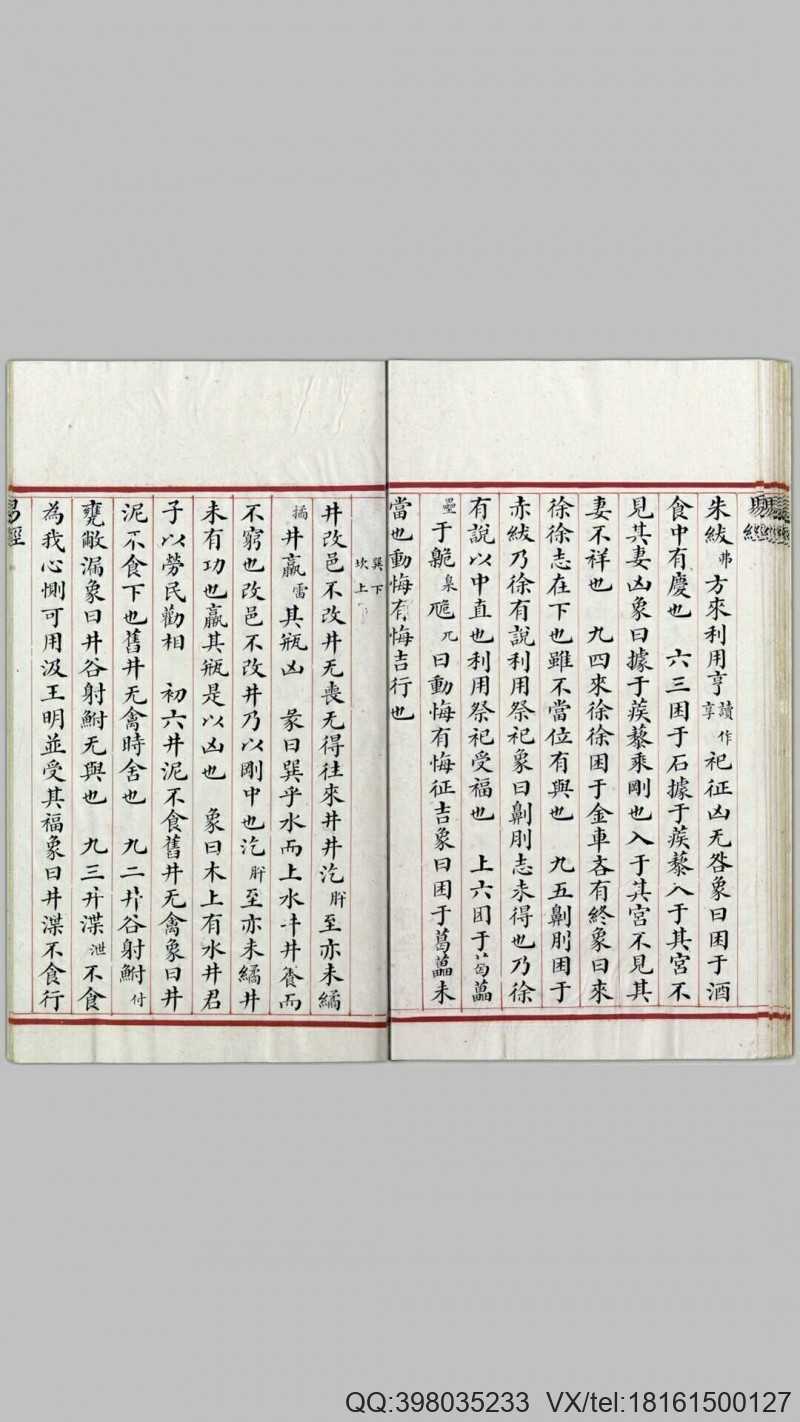 易經
朱紱弗方來利用亨讀作享祀征凶无咎象曰困于酒
食中有慶也 六三困于石據于蒺藜入于其宮不
見其妻凶象曰據于蒺藜乘剛也入于其宮不見其
妻不祥也 九四來徐徐困于金車吝有終象曰來
徐徐志在下也雖不當位有與也 九五劓刖困于
赤紱乃徐有說利用祭祀象曰劓刖志未得也乃徐
有說以中直也利用祭祀受福也 上六困于葛藟
壘于臲臬卼兀曰動悔有悔征吉象曰困于葛藟未
當也動悔有悔吉行也
巽下坎上
井改邑不改井无喪无得往來井井汔肸至亦未繘
橘井羸雷其瓶凶 彖曰巽乎水而上水井井養而
不窮也改邑不改井乃以剛中也汔肸至亦未繘井
未有功也羸其瓶是以凶也 象曰木上有水井君
子以勞民勸相 初六井泥不食舊井无禽象曰井
泥不食下也舊井无禽時舍也 九二井谷射鮒付
甕敝漏象曰井谷射鮒无與也 九三井渫泄不食
為我心惻可用汲王明並受其福象曰井渫不食行
易經
QQ:398035233 VX/tel:18161500127